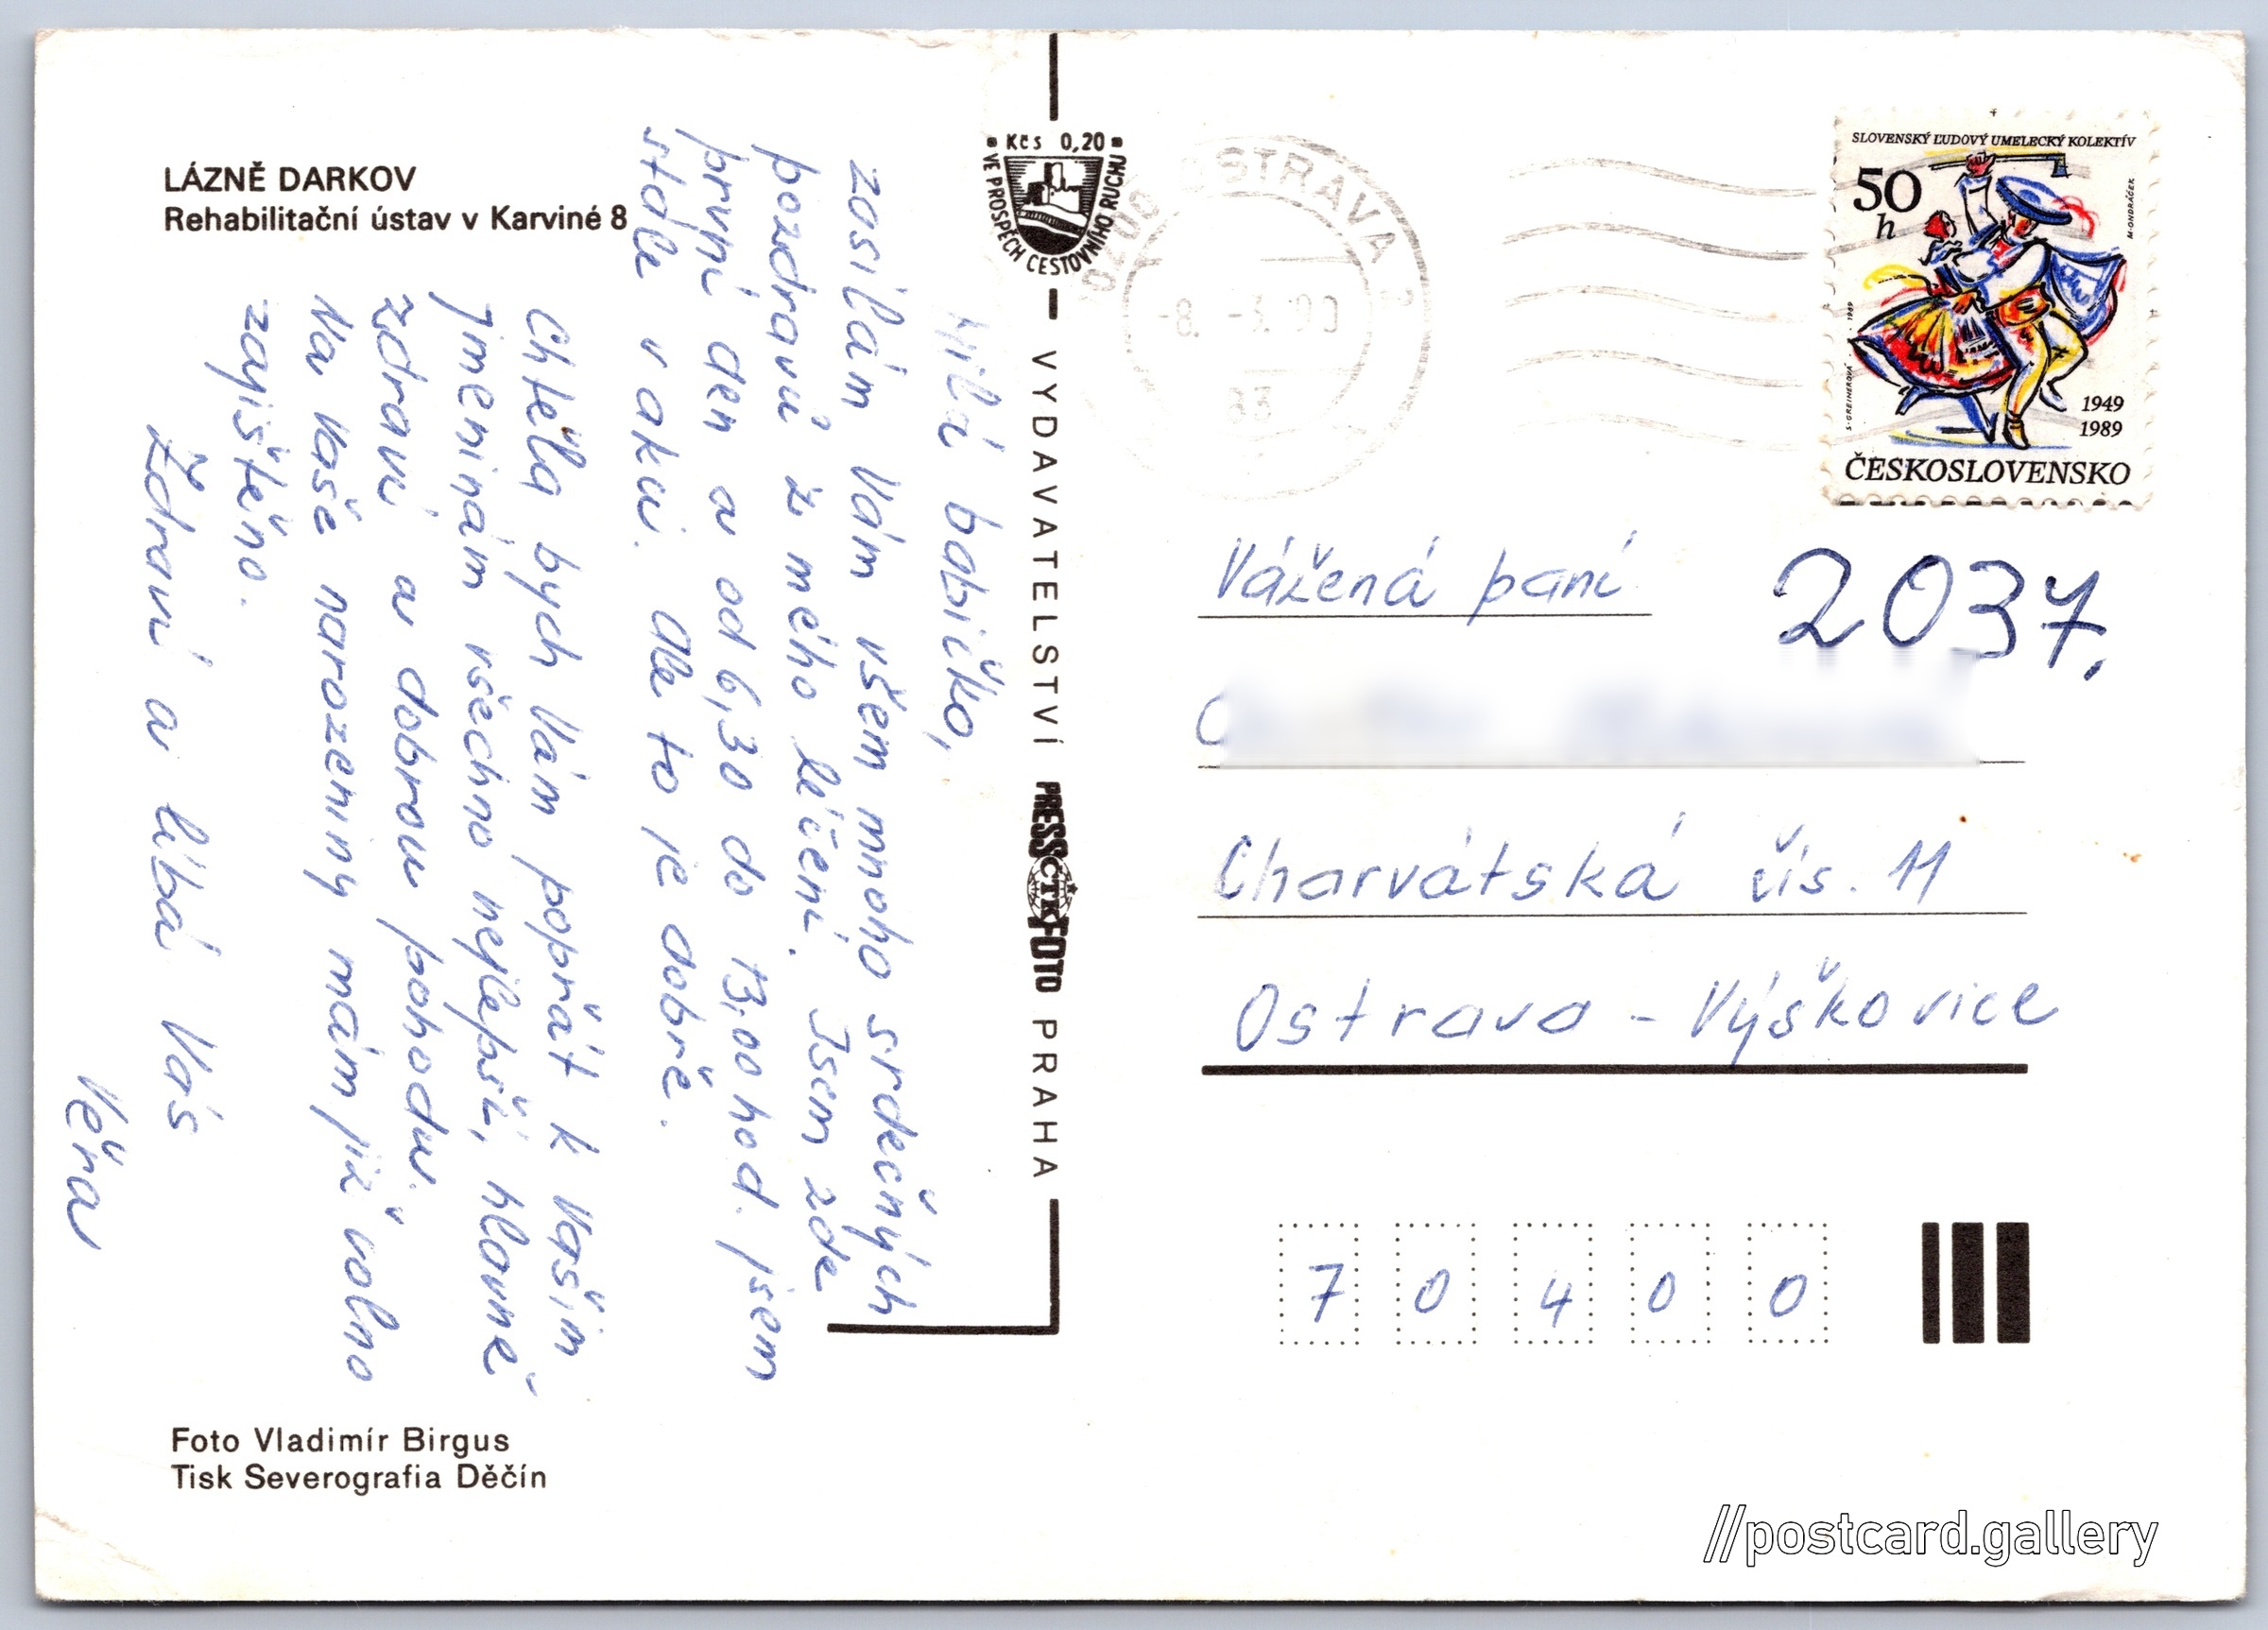 LÁZNĚ DARKOV
Rehabilitační ústav v Karviné 8
Milá babičko,
zasílám Vám všem mnoho srdečných
pozdravů z mého léčení. Jsem zde
první den a od 6,30 do 13,00 hod. jsem
stále v akci. Ale to je dobře.
Chtěla bych Vám popřát k Vašim
jmeninám všechno nejlepší, hlavně
zdraví a dobrou pohodu.
Na Vaše narozeniny mám již volno
zajištěno.
Zdraví a líbá Vás
Věra
Foto Vladimír Birgus
Tisk Severografia Děčín
Kčs 0,20
VE PROSPĚCH CESTOVNÍHO RUCHU
VYDAVATELSTVÍ PRESSFOTO PRAHA
ČTK
OSTRAVA
-8. -3. 90
SLOVENSKÝ ĽUDOVÝ UMELECKÝ KOLEKTÍV
50
h
M·ONDRÁČEK
S·GREINEROVÁ · 1989
1949
1989
ČESKOSLOVENSKO
Vážená paní
2037.
Charvátská čís. 11
Ostrava - Výškovice
7 0 4 0 0
//postcard.gallery